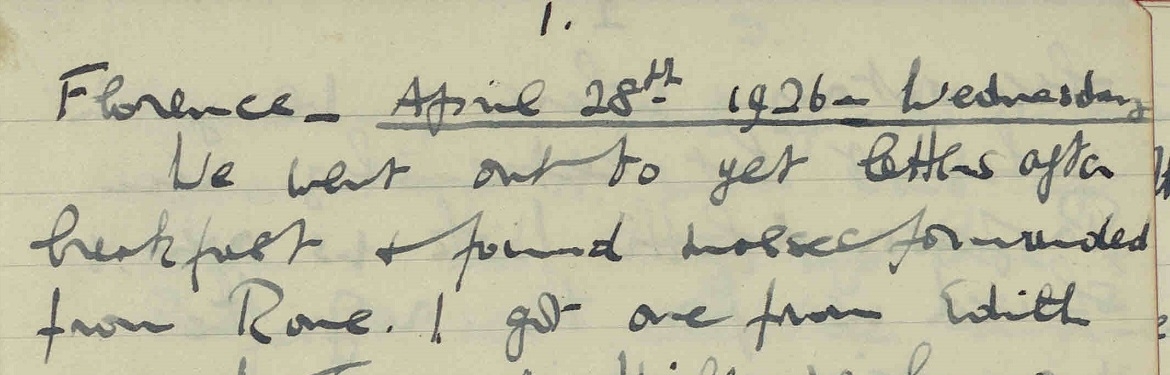 1.
Florence - April 28th 1926 - Wednesday
We went out to get letters after
breakfast & found masses forwarded
from Rome. I got one from Edith